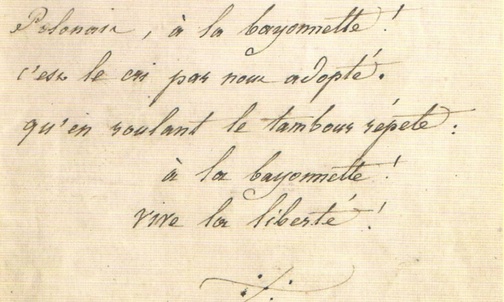 Polonais, à la bayonnette!
c'est le cri par nous adopté.
qu'en roulant le tambour répete:
à la bayonnette!
vive la liberté!